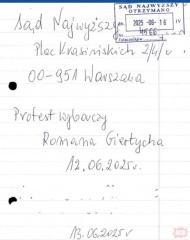 Sąd Najwyższy
SĄD NAJWYŻSZY
OTRZYMANO
2025-06-16
Plac Krasińskich 2/4/
00-951 Warszawa
Protest wyborczy
Romana Giertycha
12.06.2025r.
13.06.2025r